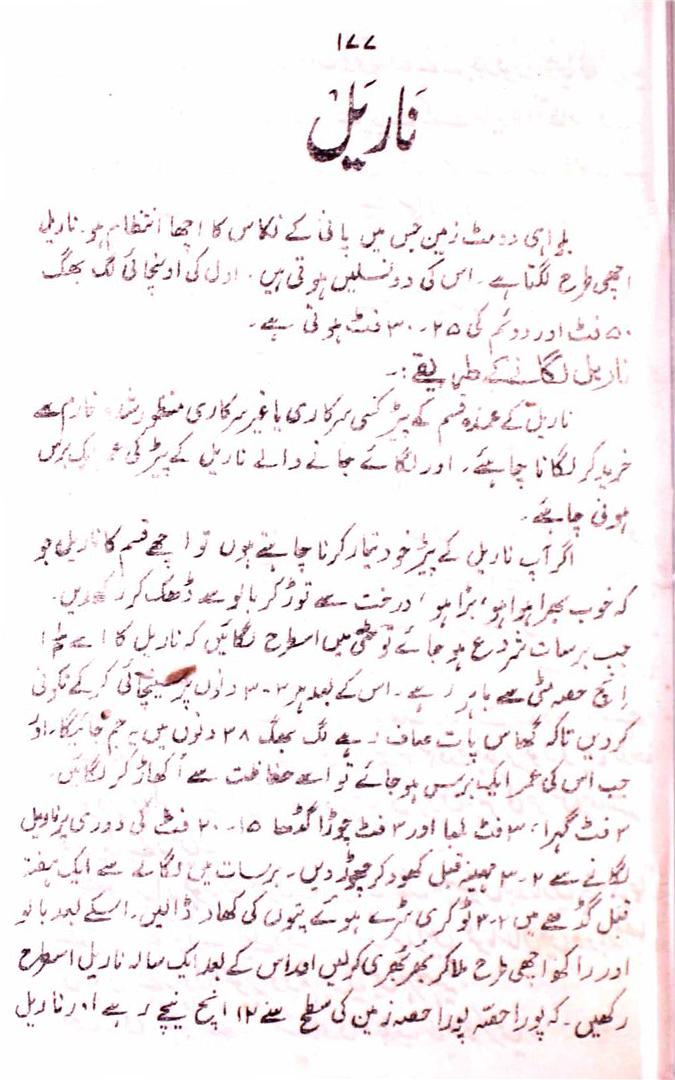 ۱۷۷
نَاریَلْ
بلواہی دومٹ زمین جس میں پانی کے نکاس کا اچھا انتظام ہو۔ ناریل
اچھی طرح لگتا ہے۔ اس کی دو نسلیں ہوتی ہیں۔ اول کی اونچائی لگ بھگ
۵۰ فٹ اور دوئم کی ۲۵۔۳۰ فٹ ہوتی ہے۔
ناریل لگانے کے طریقے:۔
ناریل کے عمدہ قسم کے پیڑ کسی سرکاری یا غیر سرکاری منظور شدہ فارم سے
خرید کر لگانا چاہئے۔ اور لگائے جانے والے ناریل کے پیڑ کی عمر ایک برس
ہونی چاہئے۔
اگر آپ ناریل کے پیڑ خود تیار کرنا چاہتے ہوں تو اچھے قسم کا ناریل جو
کہ خوب بھرا ہوا ہو، بڑا ہو، درخت سے توڑ کر بالو سے ڈھک کر رکھدیں۔
جب برسات شروع ہو جائے تو مٹی میں اسطرح لگائیں کہ ناریل کا
اِنچ حصہ مٹی سے باہر رہے۔ اس کے بعد ہر ۲-۳ دنوں پر سینچائی کر کے نکونی
کر دیں تاکہ گھاس پات صاف رہے لگ بھگ ۲۸ دنوں میں یہ جم جائیگا۔ اور
جب اس کی عمر ایک برس ہو جائے تو اسے حفاظت سے اُکھاڑ کر لگائیں۔
۳ فٹ گہرا، ۳ فٹ لمبا اور ۳ فٹ چوڑا گڈھا ۱۵۔۲۰ فٹ کی دوری پر ناریل
لگانے سے ۲-۳ مہینہ قبل کھود کر چھوڑ دیں۔ برسات میں لگانے سے ایک ہفتہ
قبل گڈھے میں ۲-۳ ٹوکری سڑے ہوئے پتوں کی کھاد ڈالیں۔ اسکے بعد بالو
اور راکھ اچھی طرح ملا کر بھُربھُری کر لیں اور اس کے بعد ایک سالہ ناریل اسطرح
رکھیں۔ کہ پورا حصہ پورا حصہ زمین کی سطح سے ۱۲ اِنچ نیچے رہے اور ناریل